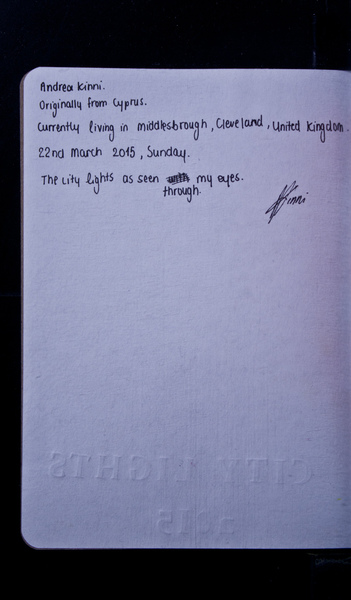 Andrea Kinni.
Originally from Cyprus.
Currently living in middlesbrough, Cleveland, United Kingdom.
22nd March 2015, Sunday.
The city lights as seen my eyes.
through.
Kinni
CITY LIGHTS
2015